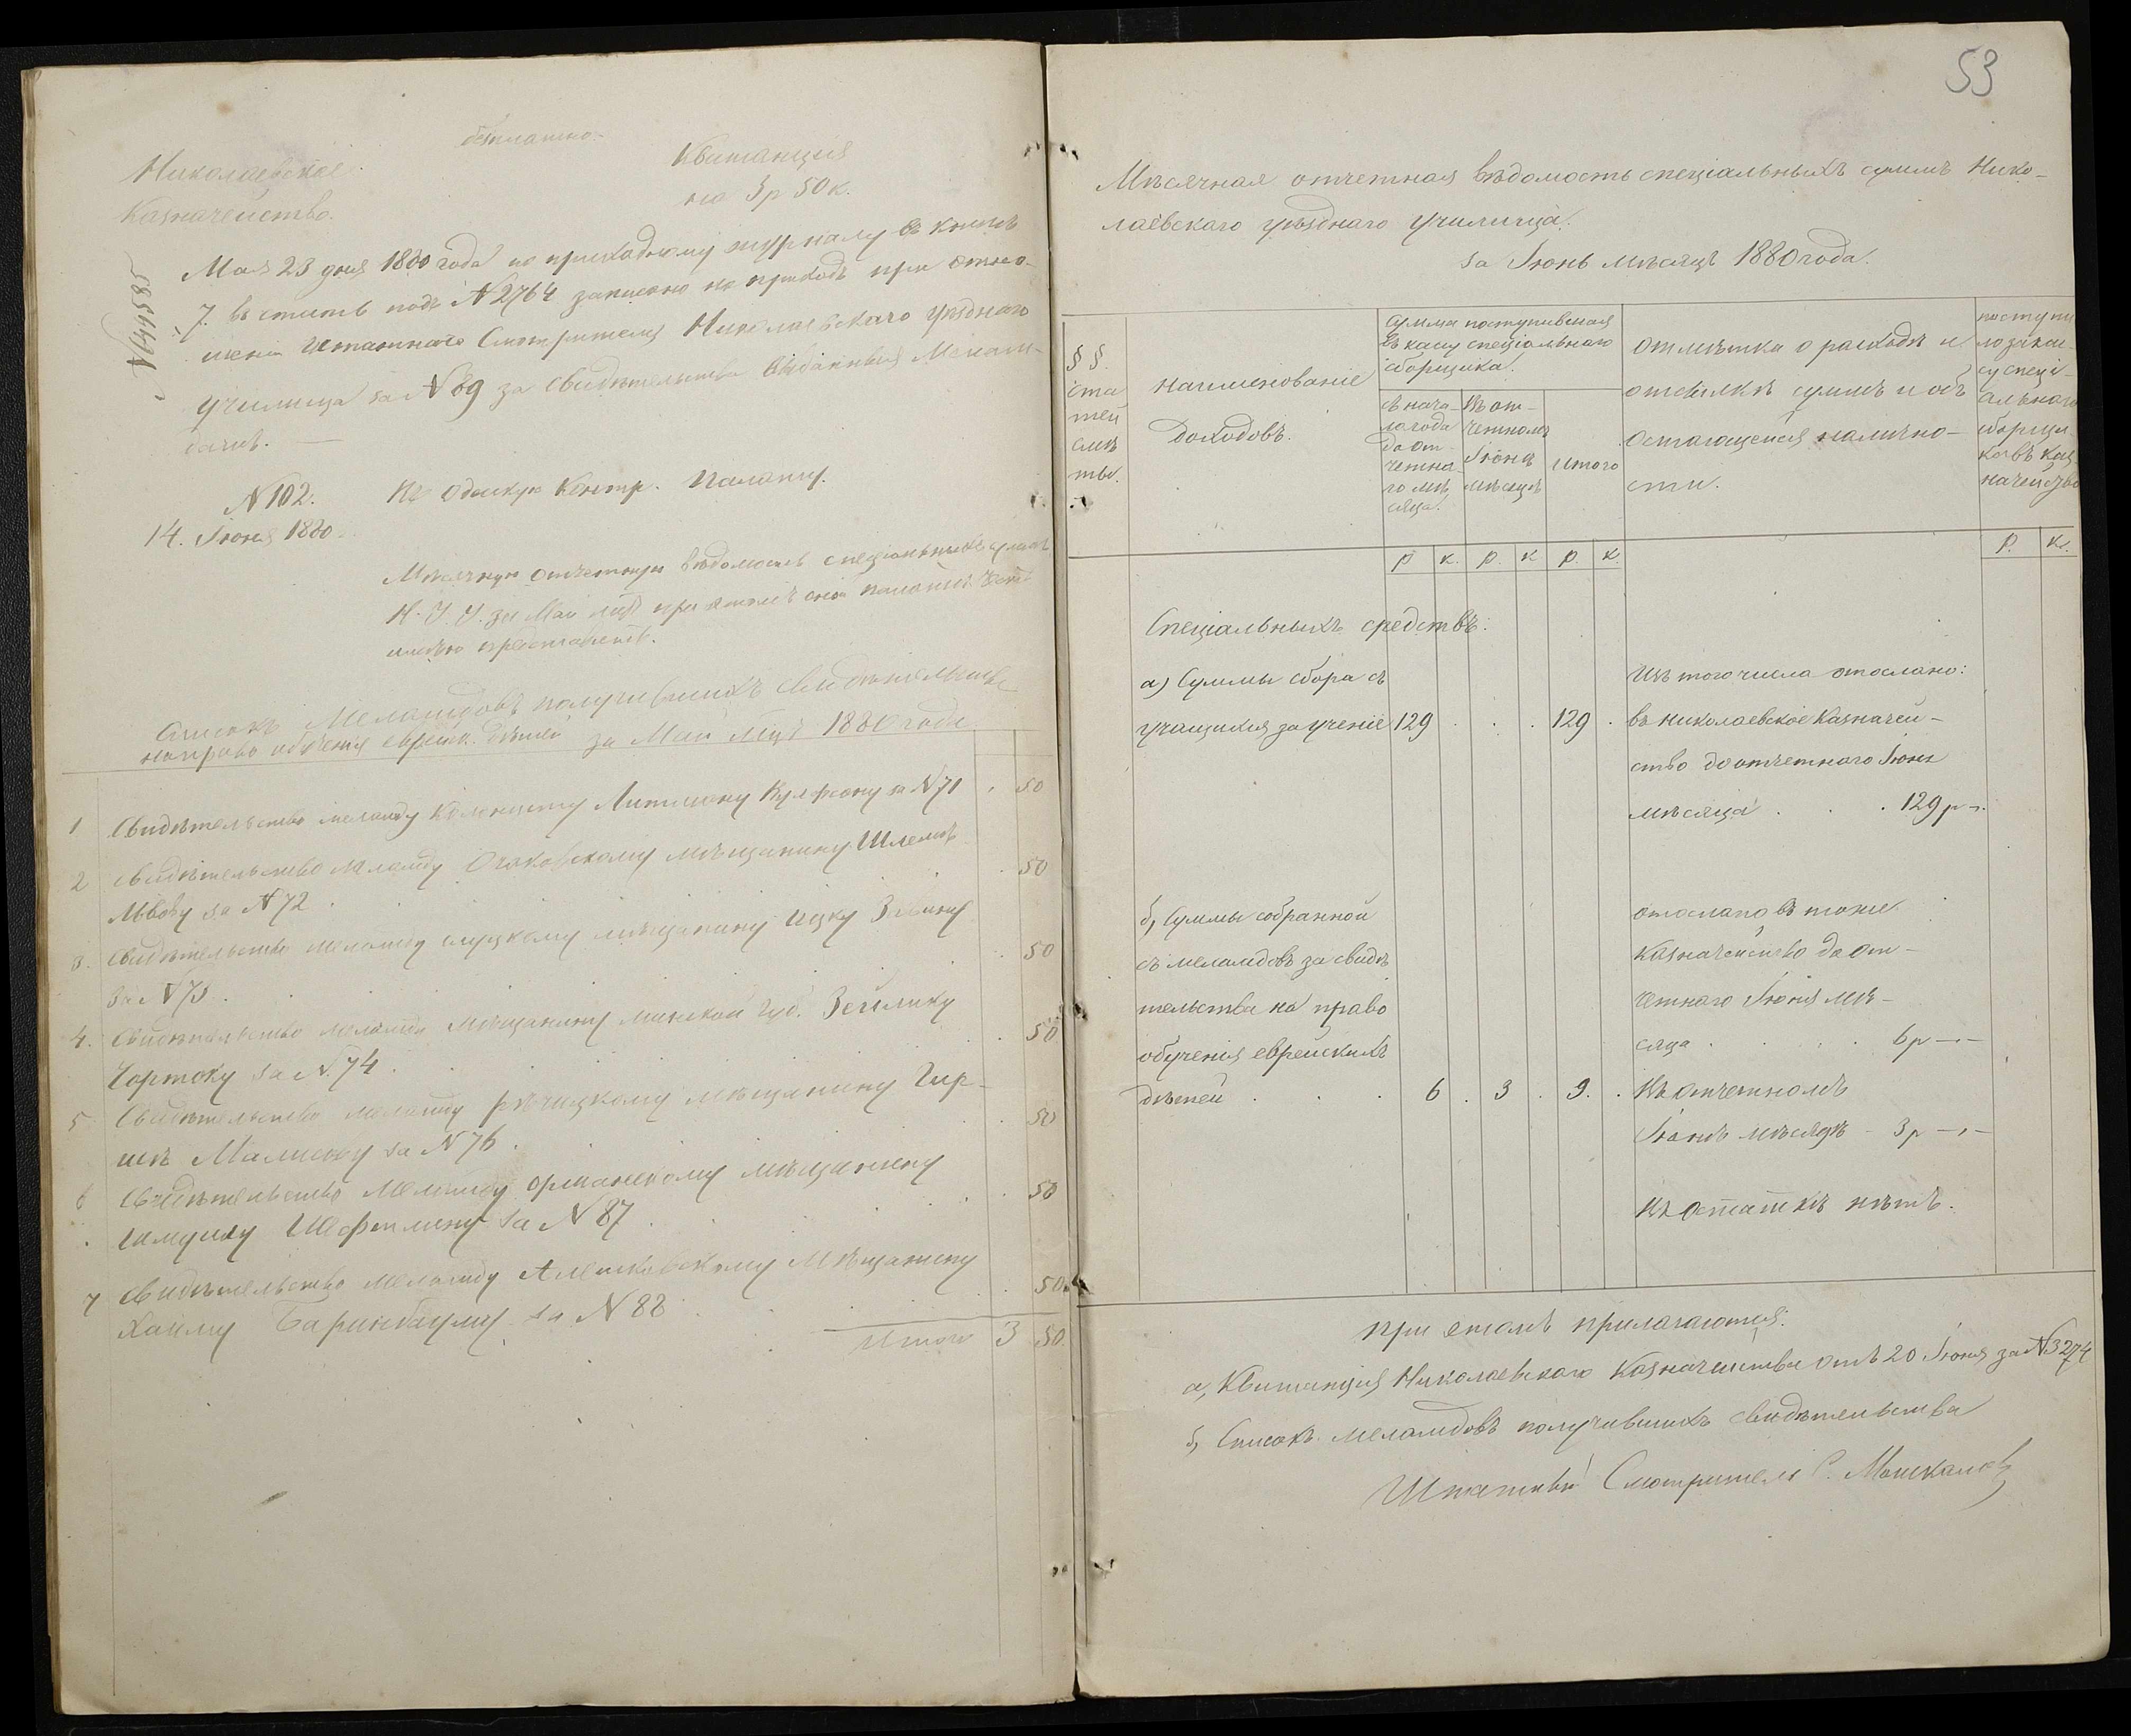 безплатно.
Николаевское
Казначейство.
Квитанція
на 3р 50к.
№44585
Мая 23 дня 1880 года по приходному журналу въ книгѣ
7. въ статьѣ подъ №2764 записано на приходъ при отно-
шеніи Штатнаго Смотрителя Николаевскаго уѣзднаго
училища за №89 за свидѣтельства выданныя Мелам-
дамъ.
№102.
14. Іюня 1880.
Въ Одесскую Контр. Палату.
Мѣсячную отчетную вѣдомость спеціальныхъ суммъ
Н. У. У. за Май при этомъ оной палатѣ честь
имѣю представить.
Списокъ Меламдовъ получившихъ свидѣтельства
направо обученія еврейск. дѣтей за Май мѣсяцъ 1880 года
1 Свидѣтельство меламду Колонисту Литману за №71 . 50
2 Свидѣтельство меламду Очаковскому мѣщанину Шлемѣ
Львову за №72 . . 50
3. Свидѣтельство меламду слуцкому мѣщанину Ицку Зевину
за №73 . . 50
4. Свидѣтельство меламду мѣщанину минской губ. Зейлику
Чортоку за №74 . . 50
5 Свидѣтельство меламду рѣчицкому мѣщанину Гир-
шѣ за №76 . . 50
6 Свидѣтельство меламду оршанскому мѣщанину
за №87 . . 50
7 Свидѣтельство меламду Алешковскому Мѣщанину
Хаиму Баринбауму за №88 . 50.
Итого 3 50.
53
Мѣсячная отчетная вѣдомость спеціальныхъ суммъ Нико-
лаевскаго уѣзднаго училища.
за Іюнь мѣсяцъ 1880 года.
§§.
ста
тей
смѣ
ты.
наименованіе
доходовъ.
Сумма поступившая
въ касу спеціальнаго
сборщика.
съ нача-
ла года
до от-
четна-
го мѣ
сяца.
Въ от-
четномъ
Іюнѣ
мѣсяцѣ
итого
отмѣтка о расходѣ и
отсылкѣ суммъ и объ
остающейся налично-
сти.
поступи
ло за ка-
су спеці-
альнаго
сборщи
ка въ каз
начейство
р К. р. К р. К.
Р. К.
Спеціальныхъ средствъ:
а) Суммы сбора съ
учащихся за ученіе 129 . . . 129 .
Изъ того числа отослано:
въ Николаевское Казначей-
ство до отчетнаго Іюня
мѣсяца . . . 129 р -„-
б) Суммы собранной
съ меламдовъ за свидѣ
тельства на право
обученія еврейскихъ
дѣтей . . . 6 . 3 . 9. .
отослано въ тоже
Казначейство до от-
четнаго Іюня мѣ-
сяца . . . . 6р -„-
Въ отчетномъ
Іюнѣ мѣсяцѣ - 3р -„-
Въ остаткѣ нѣтъ.
При этомъ прилагаются:
а, Квитанція Николаевскаго Казначейства отъ 20 Іюня за №3274
б, Списокъ меламдовъ получившихъ свидѣтельства
Штатный Смотритель